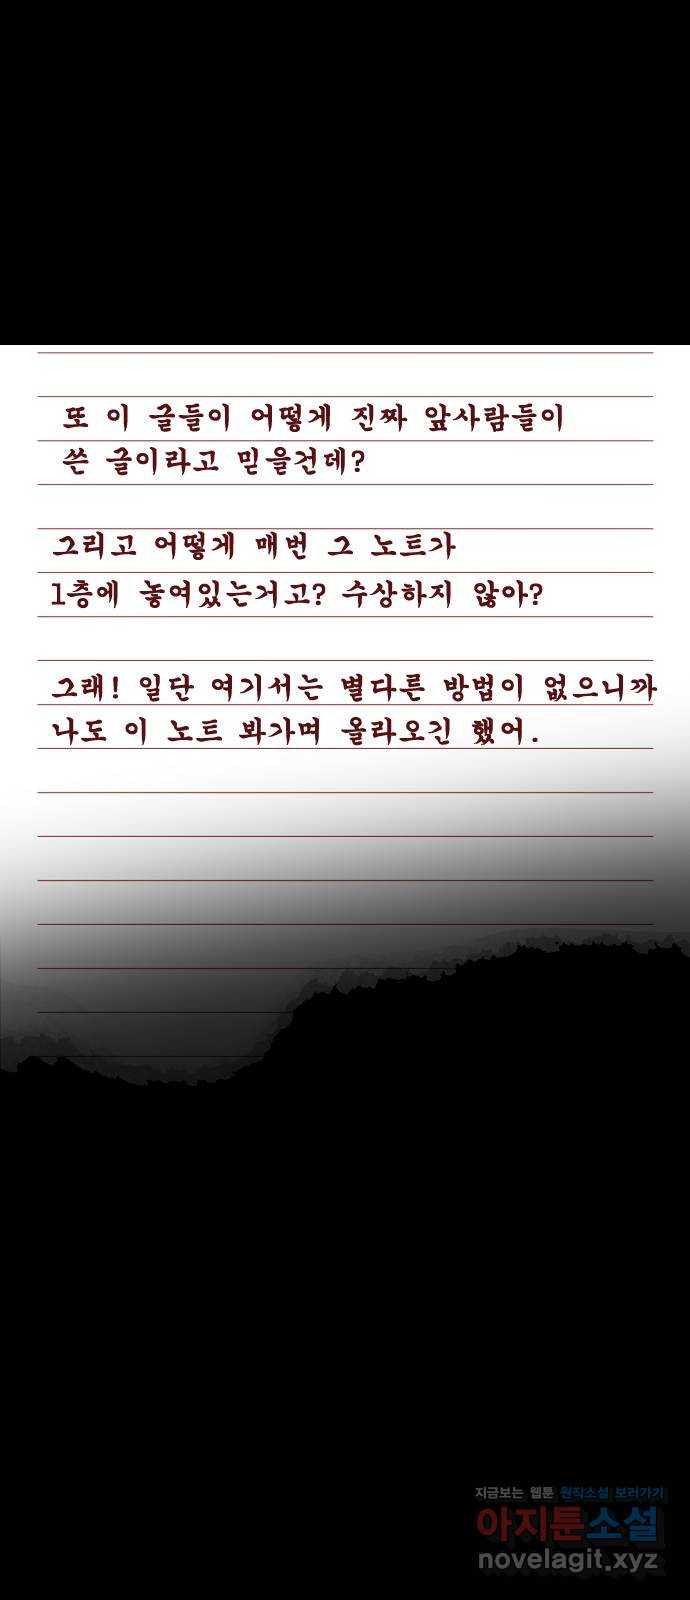 또 이 글들이 어떻게 진짜 앞사람들이
쓴 글이라고 믿을건데?
그리고 어떻게 매번 그 노트가
1층에 놓여있는거고? 수상하지 않아?
그래! 일단 여기서는 별다른 방법이 없으니까
나도 이 노트 봐가며 올라오긴 했어.
지금보는 웹툰 원작소설 보러가기
아지툰소설
novelagit.xyz